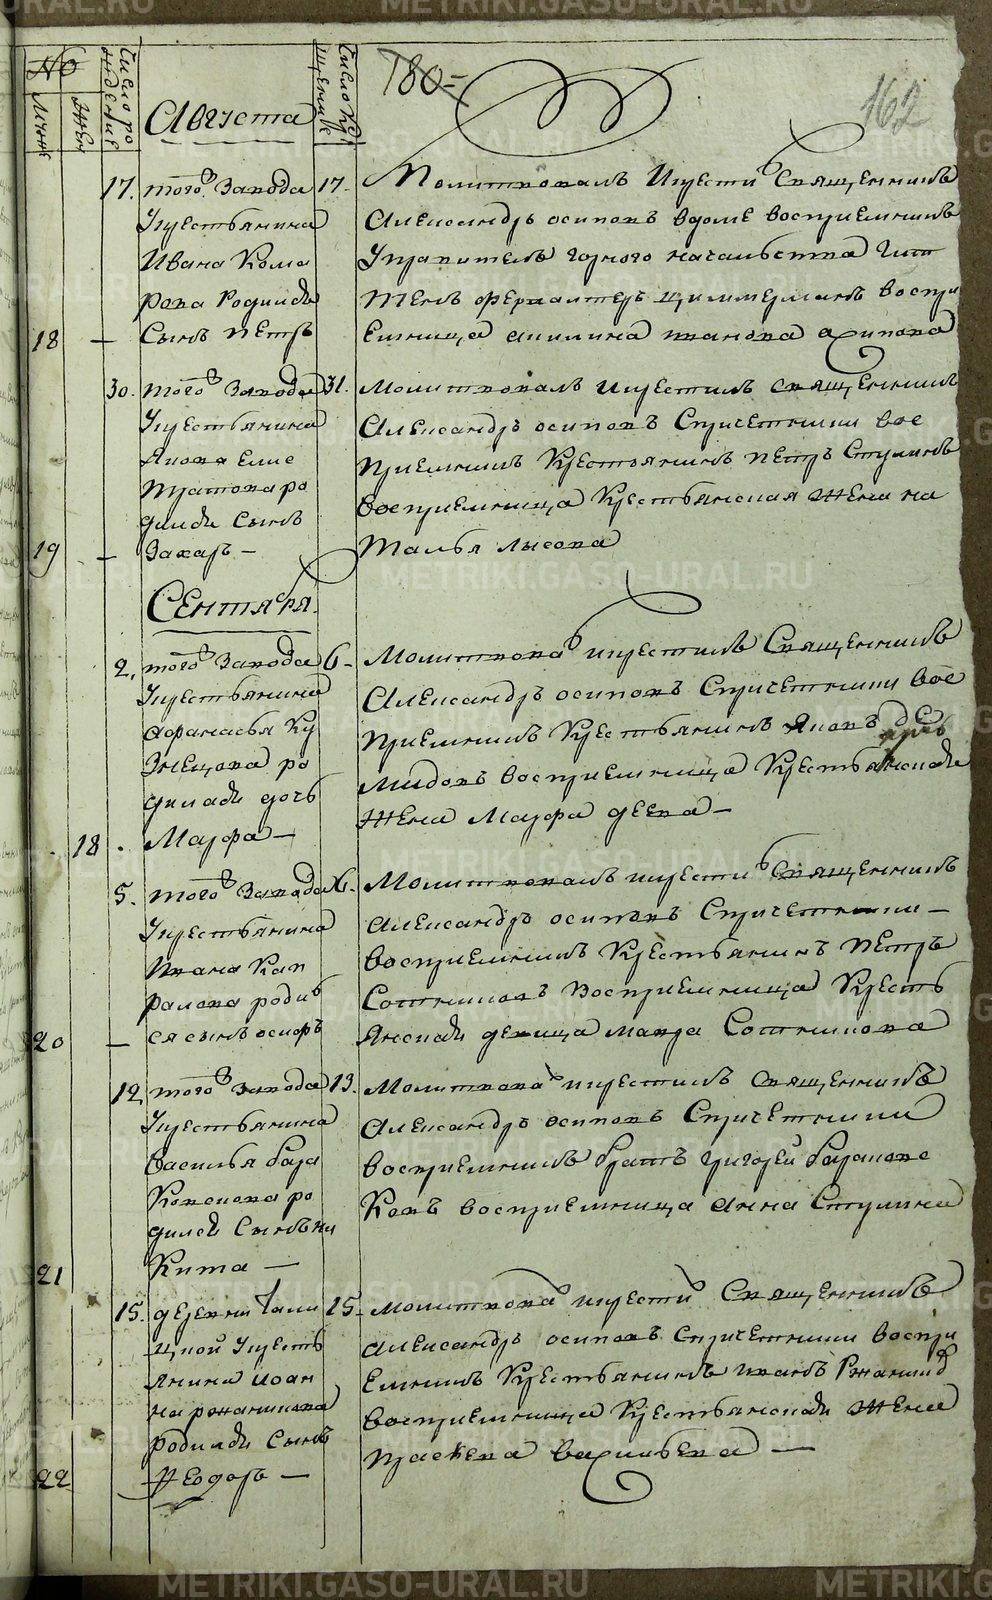 METRIKI.GASO-URAL.RU
№
Муже
Жен
Число ро
ждение
Августа
Число Кре
щение
180
162
17. того Завода
Крестьянина
Ивана Кома
рова Родился
18 — Сынъ Петръ
17. Молитвовалъ Икрести Священникъ
Александръ осиповъ вдоме восприемникъ
Управитель горного начальства
цыммерманъ воспри
емница акилина иванова архипова
30. того Завода
Крестьянина
Якова Елис
ратова ро
дился Сынъ
19 — Захаръ —
31. Молитвовалъ икрестилъ священникъ
Александръ осиповъ Спричетники вос
приемникъ Крестьянинъ петръ Стукинъ
восприемница Крестьянская Жена на
талья лысова
Сентября
2. того Завода
Крестьянина
афанасья Ку
знецова ро
дилась дочь
18. Марфа —
6 Молитвова икрестилъ Священникъ
Александръ осиповъ Спричетники вос
приемникъ Крестьянинъ Яковъ де
мидовъ восприемница Крестьянская
Жена Марфа деева —
5. того Завода
Крестьянина
Ивана Кап
ралова родив
20 — ся сынъ осипъ
6. Молитвовалъ икрести Священникъ
Александръ осиповъ Спричетники —
восприемникъ Крестьянинъ Петръ
Сотниковъ Восприемница Кресть
янская девица мавра Сотникова
12 того Завода
Крестьянина
василья бара
Ковскова ро
дился Сынъ ни
21 Кита —
13. Молитвова икрестилъ священникъ
Александръ осиповъ Спричетники
восприемникъ братъ григорей
Ковъ восприемница анна Стукина
15. деревни Тали
цкой Кресть
янина иоан
на ржанникова
родился Сынъ
22 Феодоръ —
15. молитвова икрести Священникъ
Александръ осиповъ Спричетники воспри
емникъ Крестьянинъ иванъ Ржанник
восприемница Крестьянская Жена
прасковья васильева —
METRIKI.GASO-URAL.RU